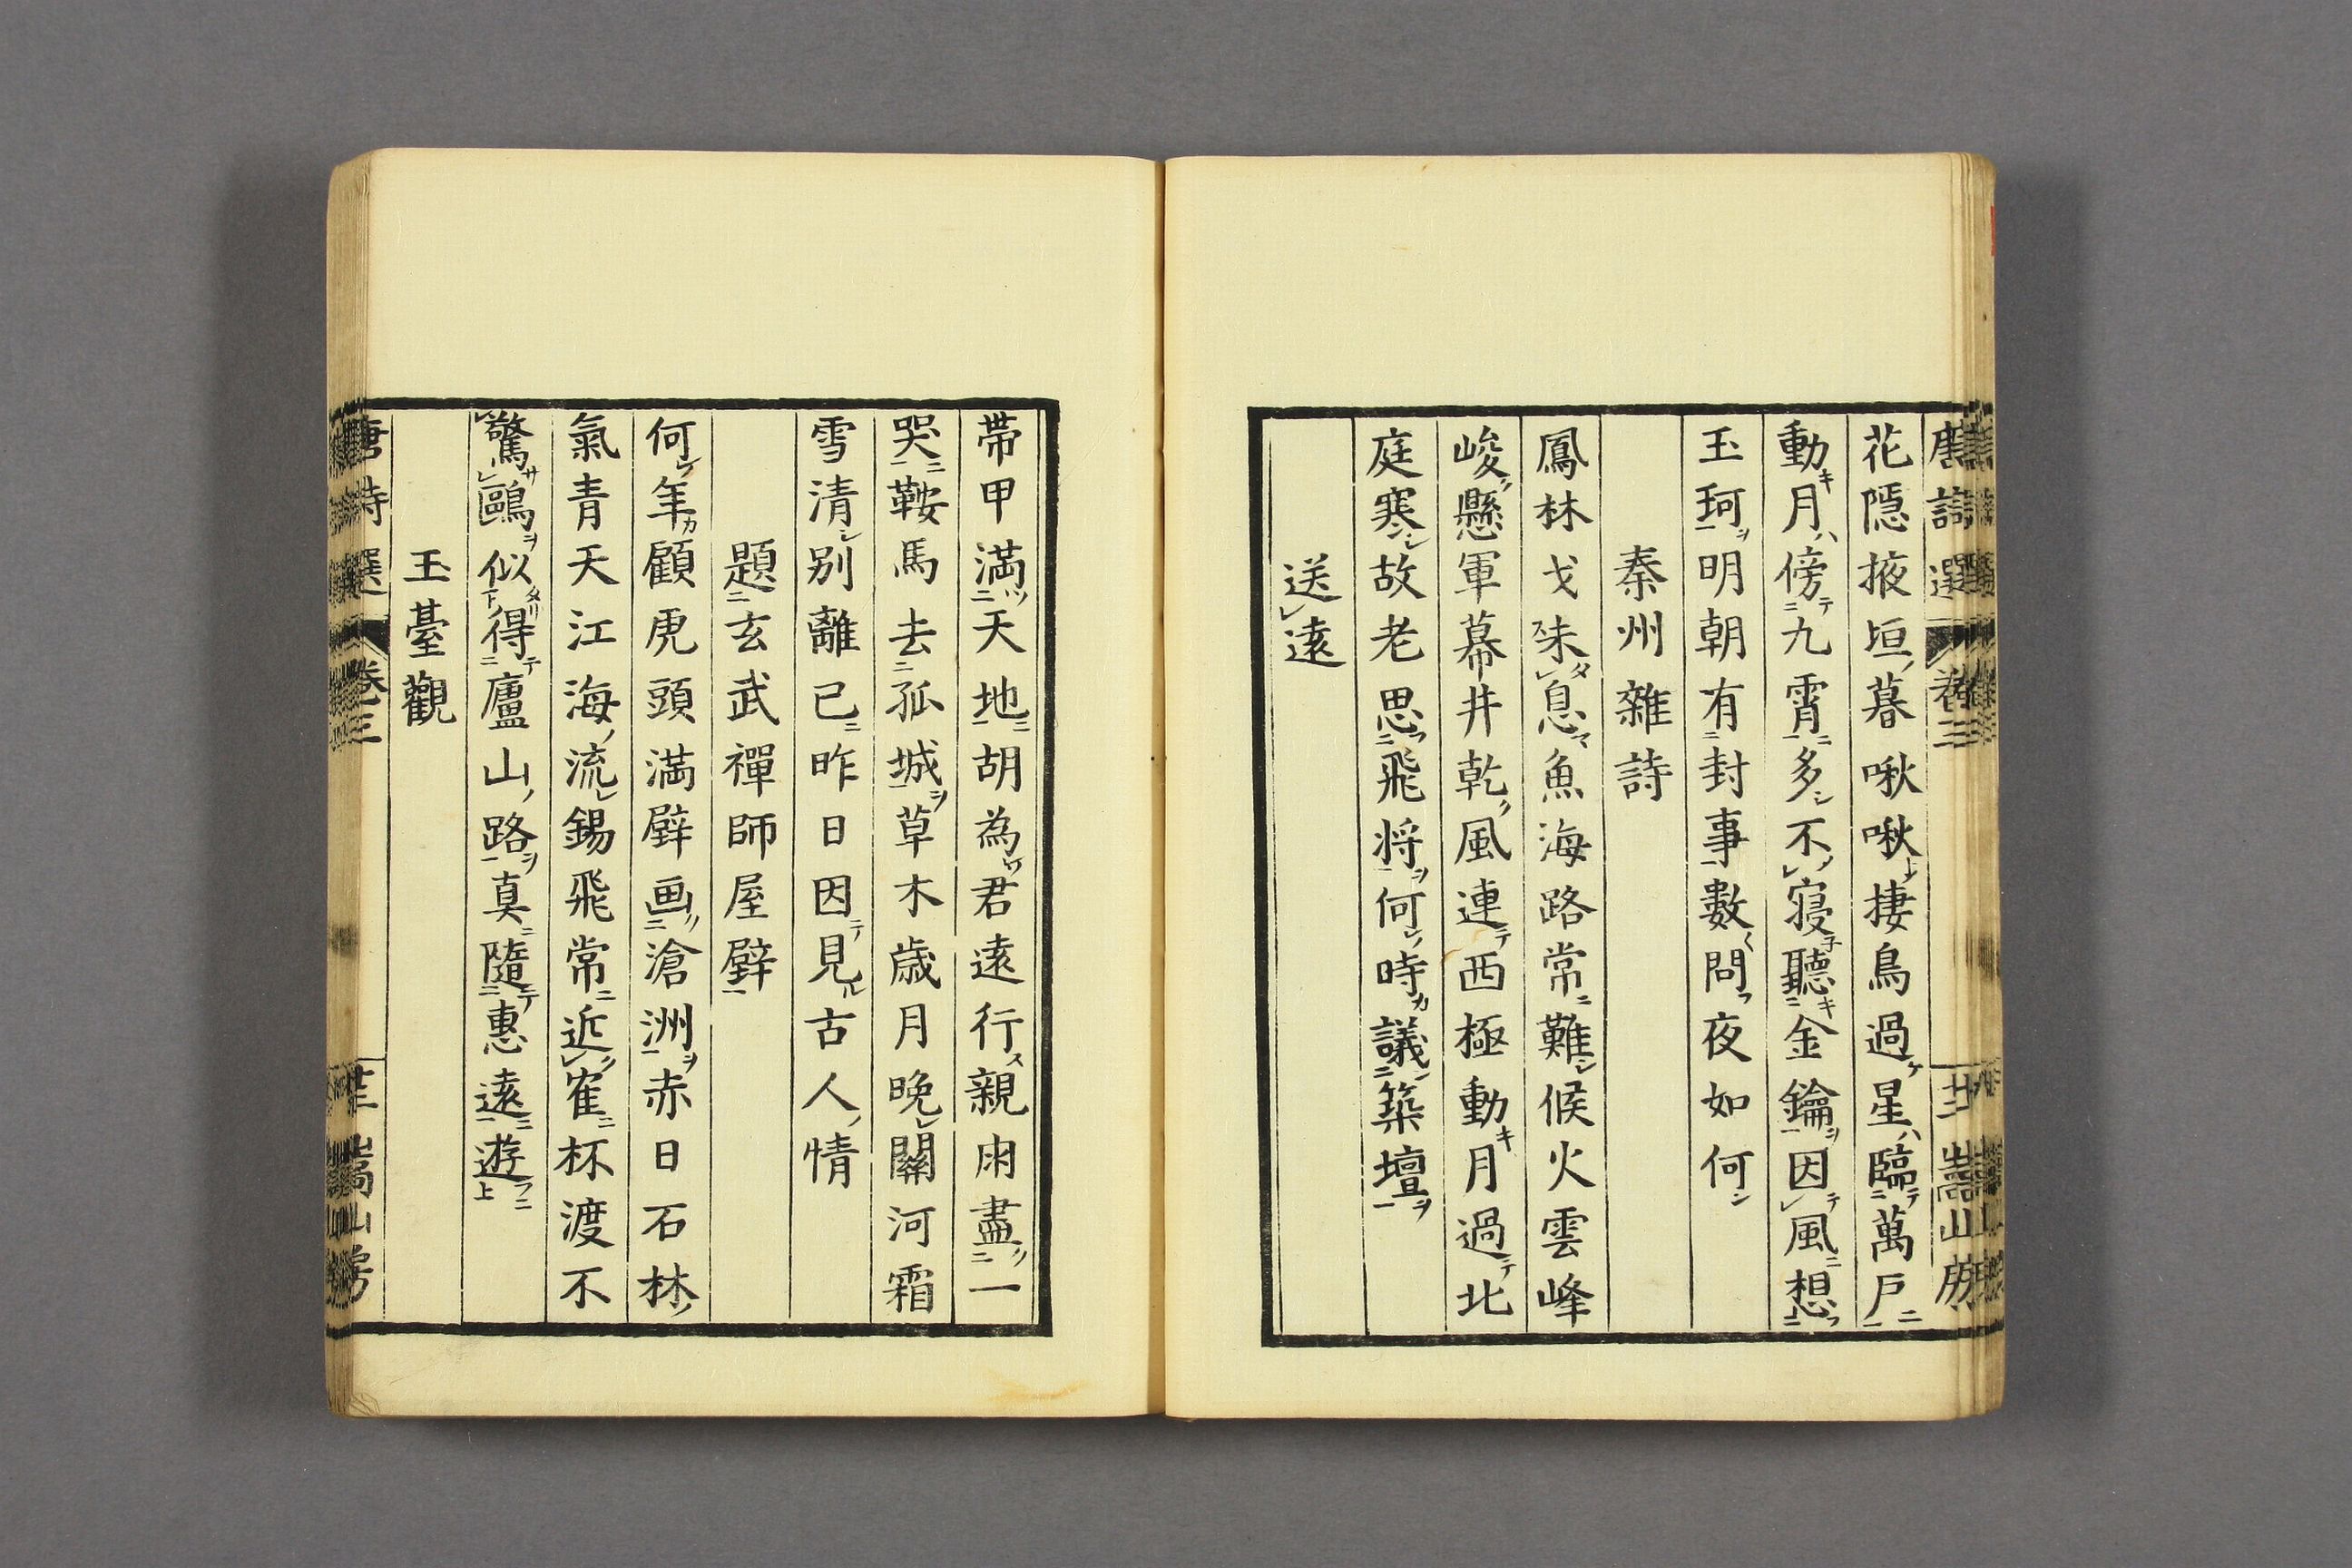 唐詩選 卷三 廿二 嵩山房
花隠掖垣暮啾啾棲鳥過星臨萬戸
動月傍九霄多不寝聽金鑰因風想
玉珂明朝有封事數問夜如何
秦州雜詩
鳳林戈未息魚海路常難候火雲峰
峻懸軍幕井乾風連西極動月過北
庭寒故老思飛将何時議築壇
送遠
帯甲満天地胡為君遠行親朋盡一
哭鞍馬去孤城草木歳月晩關河霜
雪清别離已昨日因見古人情
題玄武禪師屋壁
何年顧虎頭満壁画滄洲赤日石林
氣青天江海流錫飛常近寉杯渡不
驚鷗似得廬山路真隨惠遠遊
玉臺觀
唐詩選 卷三 廿三 嵩山房